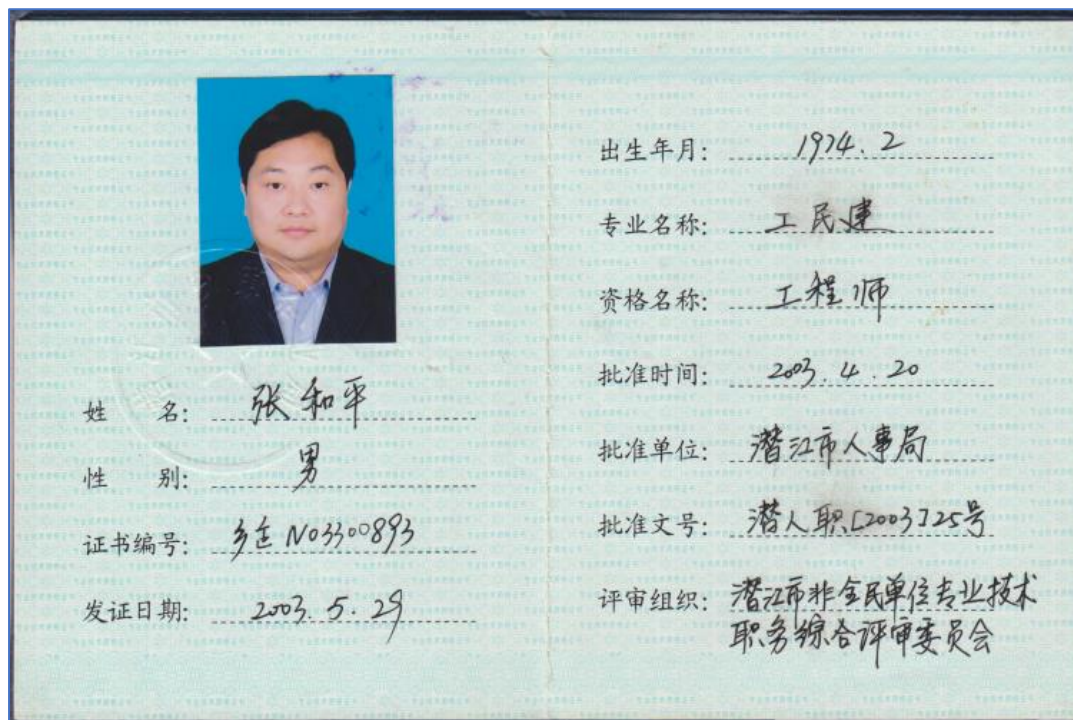 姓 名: 张和平
性 别: 男
证书编号: NO3300893
发证日期: 2003.5.29
出生年月: 1974.2
专业名称: 工民建
资格名称: 工程师
批准时间: 2003.4.20
批准单位: 潜江市人事局
批准文号: 潜人职[2003]25号
评审组织: 潜江市非全民单位专业技术
职务综合评审委员会